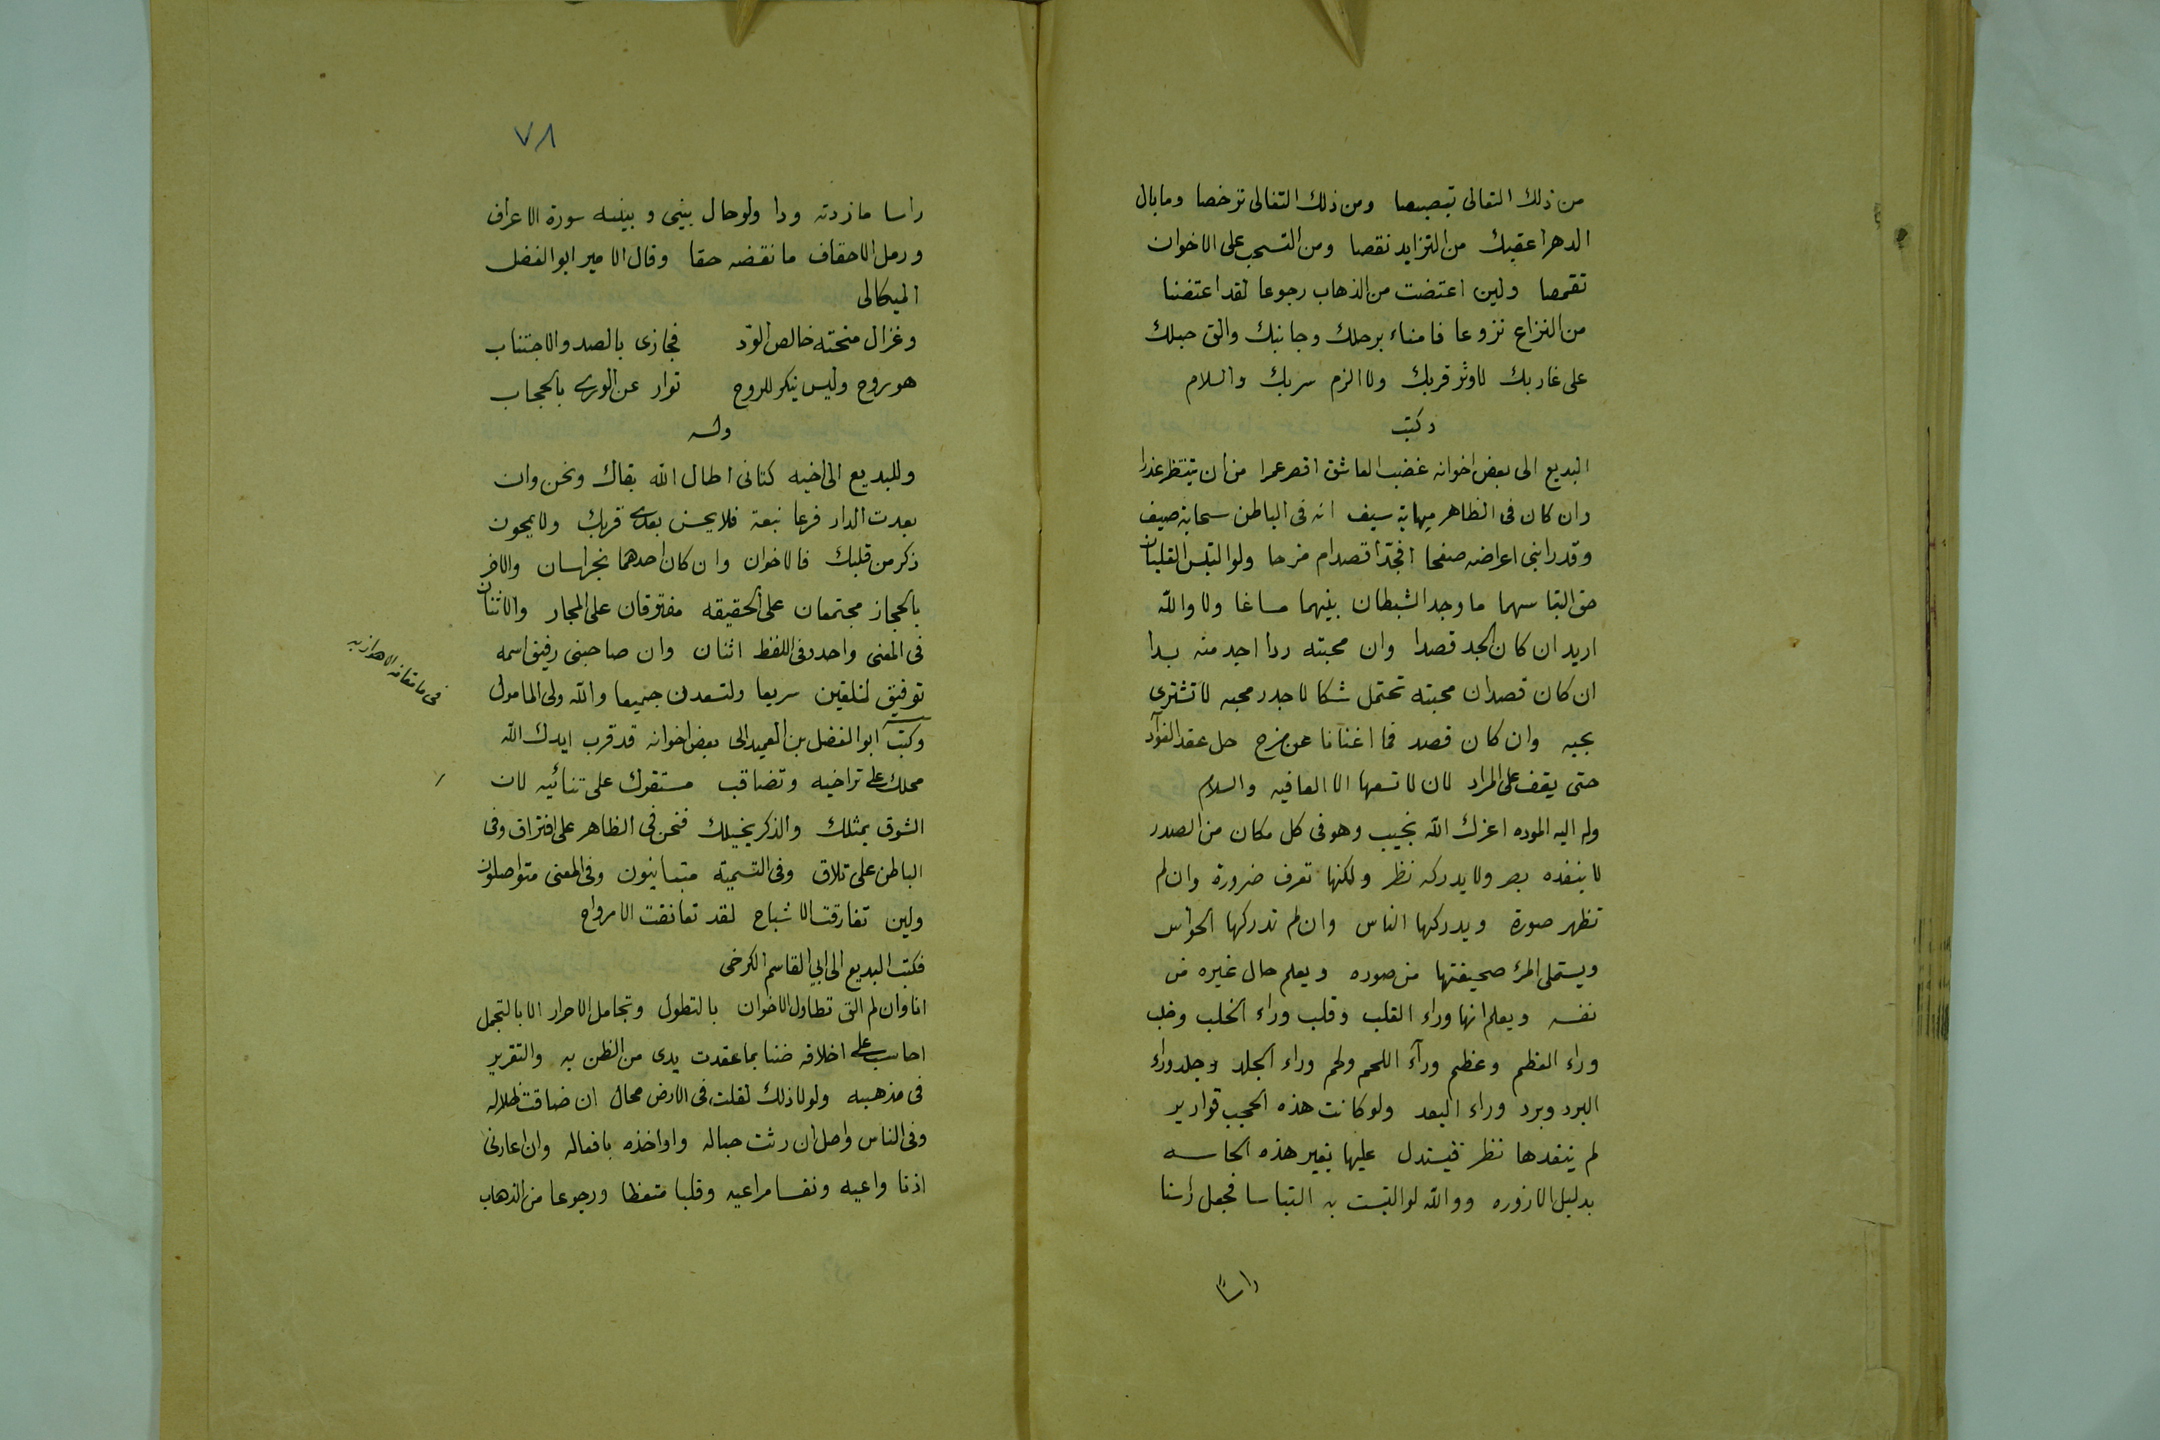 من ذلك التعالى تبصبصا ومن ذلك التغالى ترخصا ومابال
الدهر اعقبك من التزايد نقصا ومن التسحب على الاخوان
تقمصا ولين اعتضت من الذهاب رجوعا لقد اعتضنا
من النزاع نزوعا فامناء برحلك وجانبك والق حبلك
على غاربك لا اوثر قربك ولا الزم سربك والسلام
وكتب
البديع الى بعض اخوانه غضب العاشق اقصر عمرا من ان ينتظر عذرا
وان كان فى الظاهر مهابة سيف انه فى الباطن سحابة صيف
وقد رابنى اعراضه صفحا افجدّا قصد ام مزحا ولو التبس القلبان
حق التباسهما ما وجد الشيطان بينهما مساغا ولا والله
اريد ان كان الجد قصدا وان محبته ردا اجد منه بدا
ان كان قصد ان محبته تحتمل شكا لاجدر محبه لا تشترى
بحبه وان كان قصد فما اغنانا عن مزح حل عقد الفوآد
حتى يقف على المراد لان لا تسعها الا العافيه والسلام
وله اليه الموده اعزك الله بجيب وهو فى كل مكان من الصدر
لا ينفده بصر ولا يدركه نظر ولكنها تعرف ضرورة وان لم
تظهر صورة ويدركها الناس وان لم تدركها الحواس
ويستملى المرء صحيفتها من صدره ويعلم حال غيره من
نفسه ويعلم انها وراء القلب وقلب وراء الخلب وخلب
وراء العظم وعظم ورآء اللحم ولحم وراء الجلد وجلد وراء
البرد وبرد وراء البعد ولو كانت هذه الحجب قوارير
لم ينفدها نظر فيستدل عليها بغير هذه الحاسه
بدليل الا زوره ووالله لو التبست به التباسا فجعل راسنا
راسًا
٧٨
راسا مازدته ودا ولو حال بينى وبينه سورة الاعراف
ورمل الاحقاف ما نقضه حقا وقال الامير ابو الفضل
الميكالى
وغزال منحته خالص الودّ فجازى بالصد والاجتناب
هو روح وليس ينكر للروح توار عن الورى بالحجاب
وله
وللبديع الى اخيه كتابى اطال الله بقاك ونحن وان
بعدت الدار فرعا نبعة فلا يحسن بعدى قربك ولا يمحون
ذكر من قلبك فالاخوان وان كان احدهما بخراسان والاخر
بالحجاز مجتمعان على الحقيقه مفترقان على المجاز والاثنان
فى المعنى واحد وفى اللفظ اثنان وان صاحبنى رفيق اسمه
توفيق لنلتقين سريعا ولنسعدن جميعا والله ولى المامول
وكتب ابو الفضل بن العميد الى بعض اخوانه قد قرب ايدك الله
محلك على تراخيه وتصاقب مستقرك على تنائيه لان
الشوق يمثلك والذكر يخيلك فنحن فى الظاهر على افتراق وفى
الباطن على تلاق وفى التسمية متباينون وفى المعنى متواصلون
ولين تفارقت الاشباح لقد تعانقت الارواح
فكتب البديع الى ابي القاسم الكرخى
انا وان لم الق تطاول الاخوان بالتطول وتحامل الاحرار الا بالتجمل
احاسب على اخلاقه ضنا بما عقدت يدى من الظن به والتقرير
فى مذهبه ولولا ذلك لقلت فى الارض مجال ان ضاقت ظلاله
وفى الناس واصل ان رثت حباله واواخذه بافعاله وان اعارنى
اذنا واعيه ونفسا مراعيه وقلبا متعظا ورجوعا من الذهاب